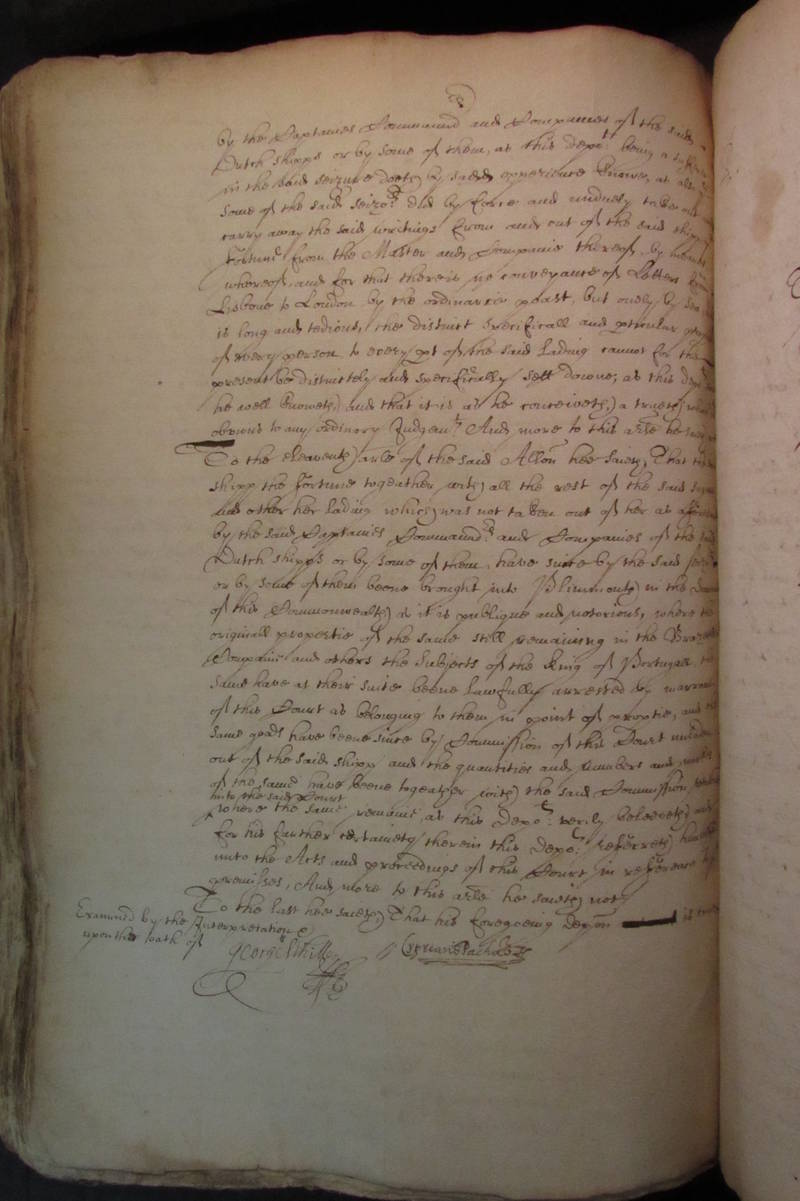 by the Captaines Command and Companies of the said
Dutch shipps or by some of them, as this depot. being a
in the said seizure doeth by sadd experience knowe, at
some of the said seizors did by force and unduely take out
carry away the said writings from and out of the said shipp
Fortune from the Master and Companie thereof, by
whereof, and for that there is no conveyance of Letters from
Lisbone to London by the ordinarie poast, but onely by Sea
is long and tedious, the distinct specificall and perticular
of every person to every pt of the said lading cannot for the
present be distinctely and specifically sett downe, as this
he well knoweth and that it is as he conceiveth a trueth
obvious to any ordinary Judgemt. And more to this arle he
To the eleaventh arle of the said Allon hee saieth, That the
shipp the Fortune togeather with all the rest of the said
and other her lading which was not taken out of her as
by the said Captaines Commandrs and Companies of the said
Dutch shipps or by some of them, have since by the said
or by some of them beene brought into Plimmouth in the
of this Commonwealth as it is publique and notorious, where the
originall propertie of the same still remaining in the
Companie and others the Subjects of the King of Portugall, the
same have at their suite beene lawfully arrested by warrant
of this Court as belonging to them in point of proptie, and the
same goods have beene since by Commission of this Court unladen
out of the said shipp and the quantities and numbers and
of the same have beene togeather with the said Commission
into the said Court
where the same remaine, as this Depot. verily beleeveth and
for his further certainety therein this Depot. referreth
unto the Acts and proceedings of this Court in reference
premisses, And more to this arle he saieth not
To the last hee saieth That his foregoeing Depon is
Examined by the Interpretation
upon the oath of